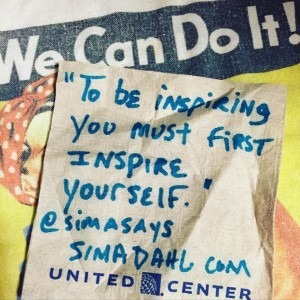 We Can Do It!
"To be inspiring
you must first
INSPIRE
yourself."
@simasays
SIMADAHL COM
UNITED CENTER